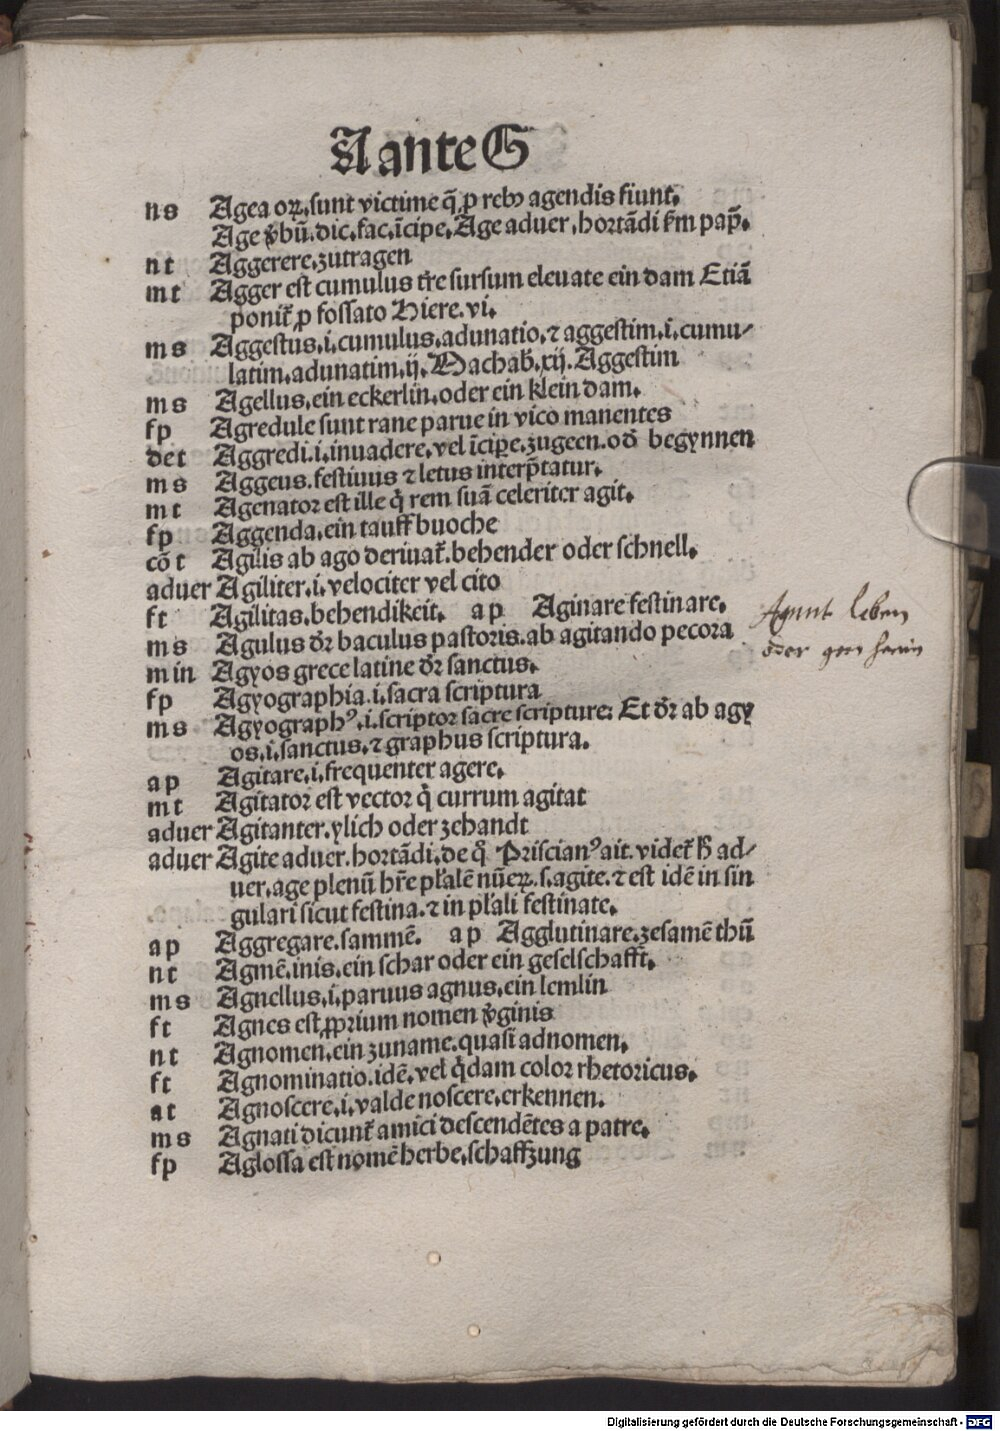 A ante G
n s Agea oꝝ. sunt victime q̄ ꝓ rebꝰ agendis fiunt.
Age v̄bū. dic, fac, īcipe, Age aduer, hortādi ẜm pap̄.
n t Aggerere, zutragen
m t Agger est cumulus tr̄e sursum eleuate ein dam Etiā
ponit᷑ ꝓ fossato Hiere. vi.
m s Aggestus, i. cumulus, adunatio, ⁊ aggestim, i. cumu⸗
latim, adunatim, ij. Machab̄. xij. Aggestim
m s Agellus, ein eckerlin, oder ein klein dam.
f p Agredule sunt rane parue in vico manentes
de t Aggredi. i. inuadere, vel īciꝑe, zugeen. od̄ begynnen
m s Aggeus. festiuus ⁊ letus interp̄tatur.
m t Agenator est ille q̇ rem suā celeriter agit.
f p Aggenda, ein tauff buoche
cō t Agilis ab ago deriuat᷑. behender oder schnell.
aduer Agiliter. i. velociter vel cito
f t Agilitas. behendikeit. a p Aginare festinare.
Agunt leben
m s Agulus dr̄ baculus pastoris. ab agitando pecora
oder gen
m i n Agyos grece latine dr̄ sanctus.
f p Agyographia. i. sacra scriptura
m s Agyographꝰ. i. scriptor sacre scripture: Et dr̄ ab agy
os, i. sanctus, ⁊ graphus scriptura.
a p Agitare, i. frequenter agere.
m t Agitator est vector q̇ currum agitat
aduer Agitanter. ylich oder zehandt
aduer Agite aduer. hortādi. de q̊ Priscianꝰ ait. videt᷑ ħ ad⸗
uer. age plenū hr̄e pl̄alē nūeꝝ. s. agite. ⁊ est idē in sin
gulari sicut festina. ⁊ in pl̄ali festinate.
a p Aggregare. sammē. a p Agglutinare. zesamē thū
n t Agmē. inis. ein schar oder ein geselschafft.
m s Agnellus, i. paruus agnus, ein lemlin
f t Agnes est ꝓprium nomen v̄ginis
n t Agnomen, ein zuname. quasi adnomen.
f t Agnominatio. idē, vel q̇dam color rhetoricus.
a t Agnoscere, i. valde noscere, erkennen.
m s Agnati dicunt᷑ amici descendētes a patre.
f p Aglossa est nomē herbe, schaffzung
Digitalisierung gefördert durch die Deutsche Forschungsgemeinschaft - DFG